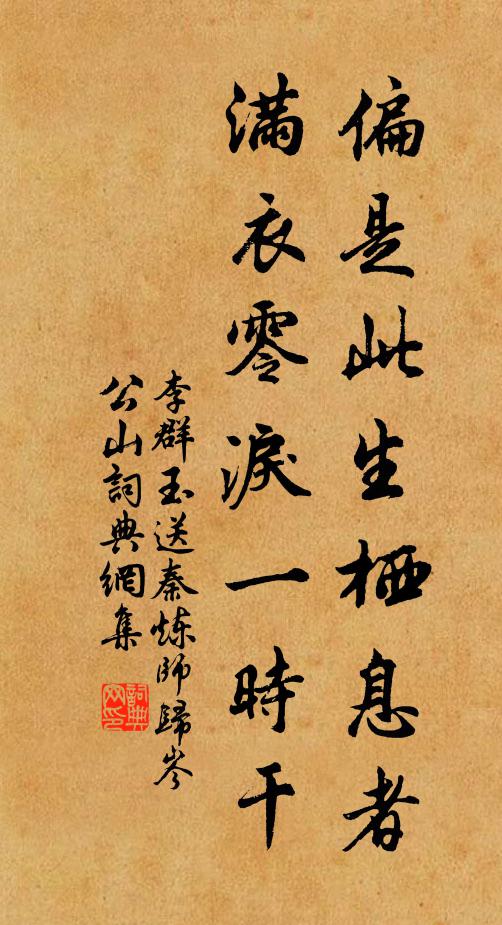 偏是此生栖息者
满衣零淚一時干
李群玉送秦炼師歸岑
公山詞典網集
詞典
网印